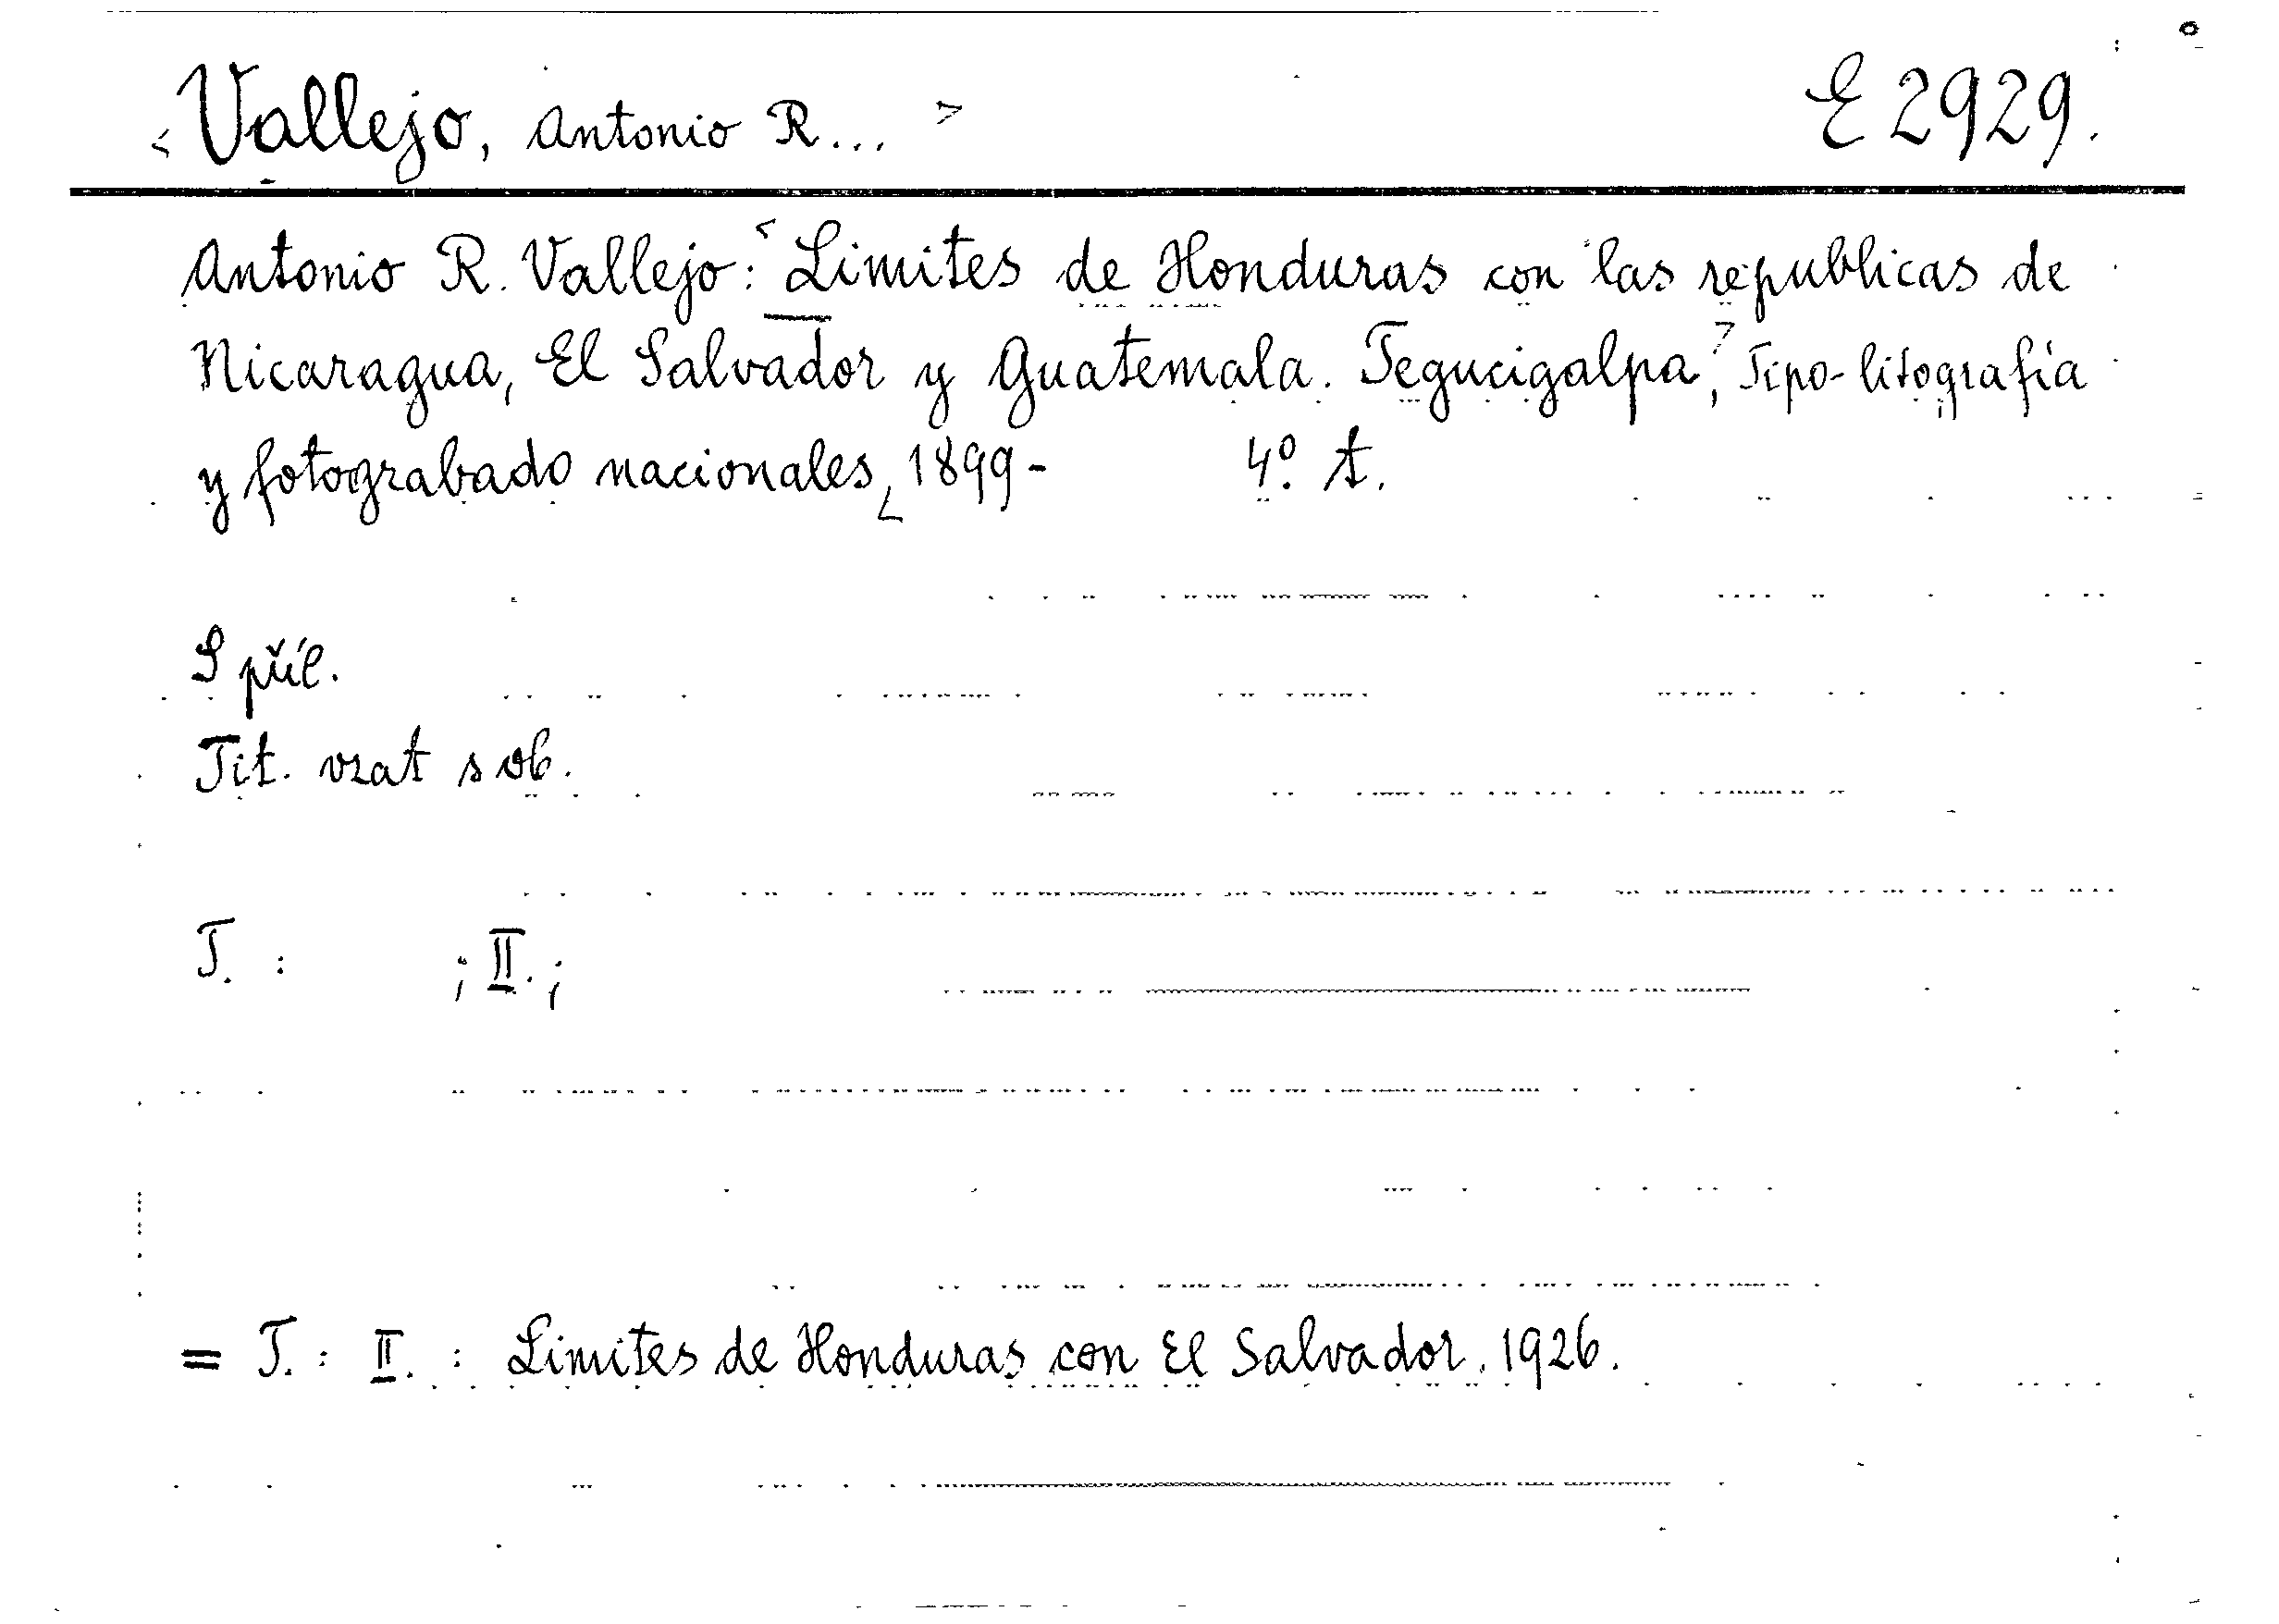 <Vallejo, Antonio R...> E 2929.
Antonio R. Vallejo: <Limites de Honduras con las republicas de
Nicaragua, El Salvador y Guatemala. Tegucigalpa,> Tipo-litografía
y fotograbado nacionales, 1899- 4º. t.
S příl.
Tit. vzat s ob.
T. : ; II. ;
= T. : II. : Limites de Honduras con El Salvador. 1926.